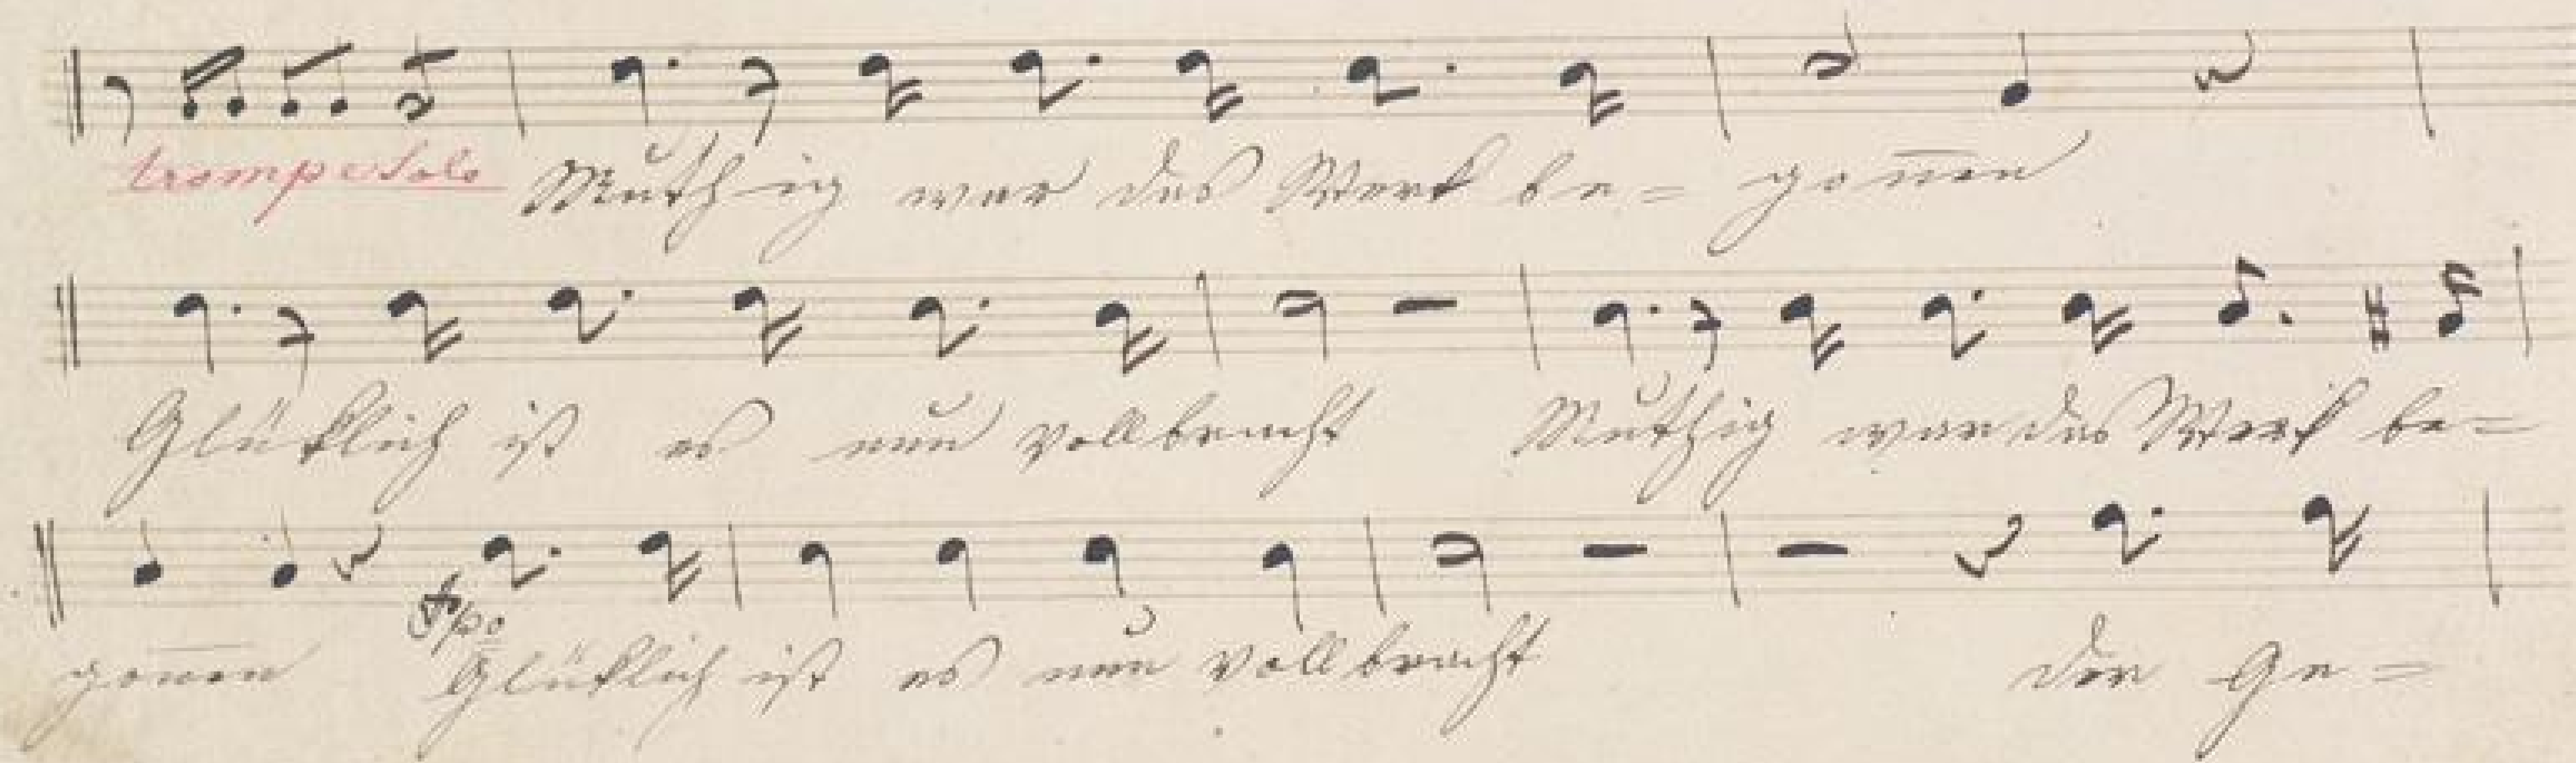 trompe Solo Muthig war das Werk be= goñen
Glüklich ist es nun vollbracht Muthig war das Werk be=
goñen Glüklich ist es nun vollbracht der Ge=